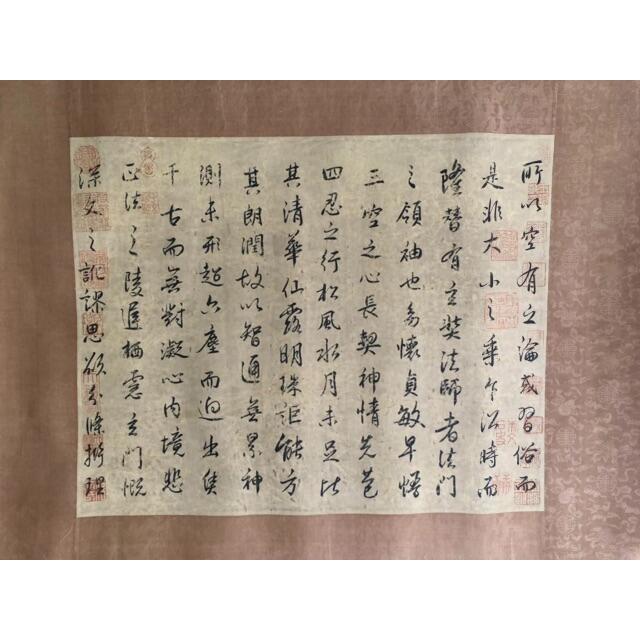 所以空有之論或習俗而
是非大小之乘乍沿時而
隆替有玄奘法師者法門
之領袖也多懷貞敏早悟
三空之心長契神情先苞
四忍之行松風水月未足比
其清華仙露明珠詎能方
其朗潤故以智通無累神
測未形超六塵而迥出隻
千古而無對凝心內境悲
正法之陵遲栖慮玄門慨
深文之訛謬思欲分條析理